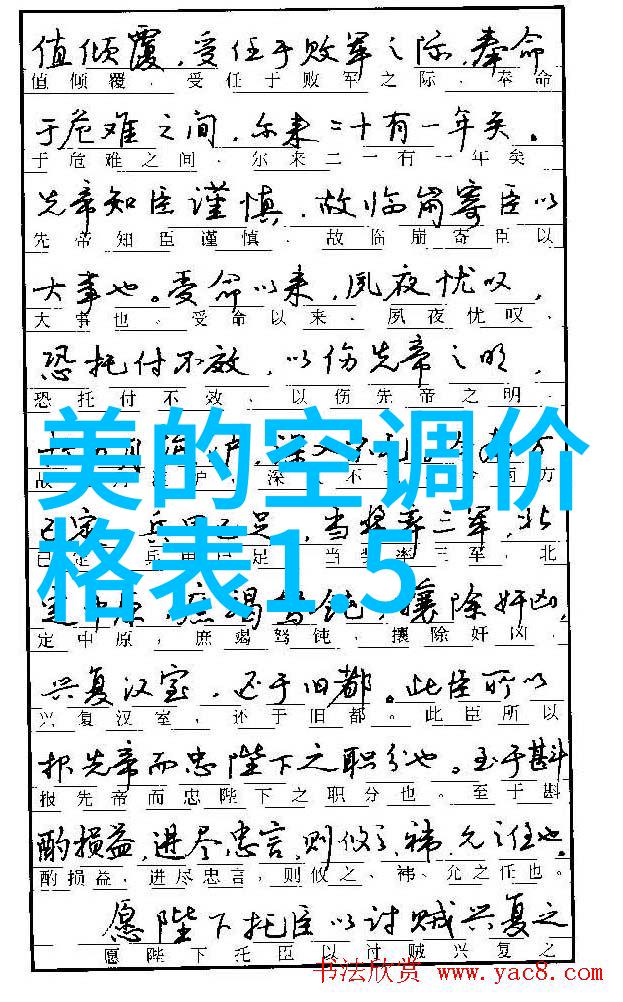 值倾覆，受任于败军之际，奉命
值倾覆，受任于败军之际，奉命
于危难之间，尔来二十有一年矣。
于危难之间，尔来二一有一年矣
先帝知臣谨慎，故临崩寄臣以
先帝知臣谨慎，故临崩寄臣以
大事也。受命以来，夙夜忧叹，
大事也。受命以来，夙夜忧叹，
恐托付不效，以伤先帝之明，
恐托付不效，以伤先帝之明，
美的空调价
月 泸，深入
故 月 泸，深 不 今南方
已定，兵甲已足，当奖率三军，北
已定，兵甲已足，当 率三军，北
格表1.5
定中原，庶竭驽钝，攘除奸凶，
定中原，庶竭驽钝，攘除奸凶，
兴复汉室，还于旧都。此臣所以
兴复汉室，还于旧都。此臣所以
报先帝而忠陛下之职分也。至于斟
报先帝而忠陛下之职分也。至于斟
酌损益，进尽忠言，则攸之、祎、允之任也。
酌损益，进尽忠言，则攸之、祎、允之任也。
愿陛下托臣以讨贼兴复之
愿陛下托臣以讨贼兴复之
书法欣赏 www.yac8.com